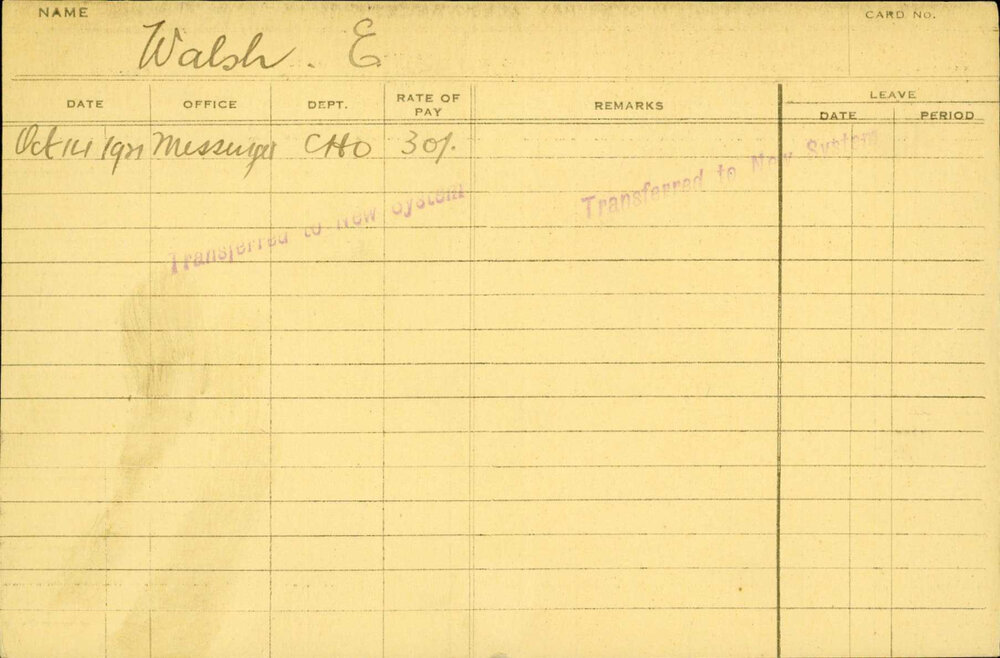 NAME
CARD NO.
Walsh. E
DATE OFFICE DEPT. RATE OF PAY REMARKS LEAVE
DATE PERIOD
Oct 14 1921 Messenger CHO 30/.
Transferred to New System
Transferred to New System